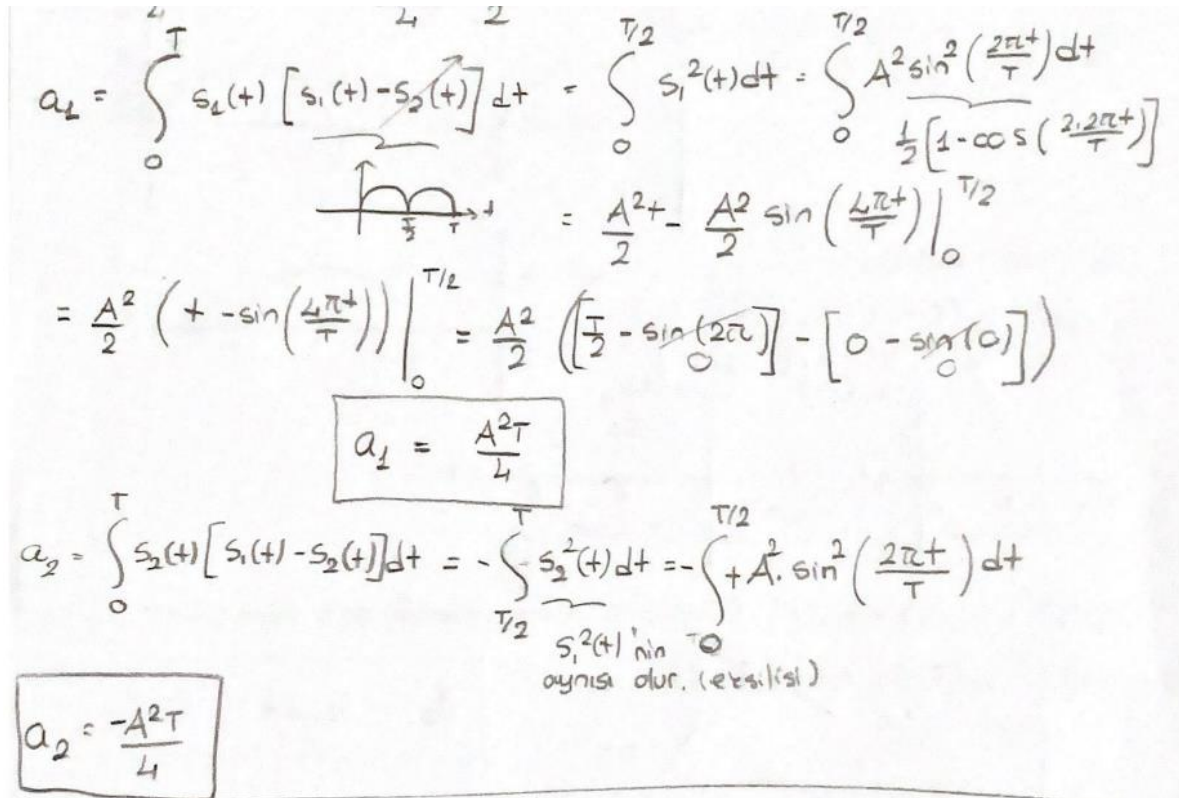 4 2
a₁ = ∫₀ᵀ s₁(t) [s₁(t) - s₂(t)] dt = ∫₀^{T/2} s₁²(t) dt = ∫₀^{T/2} A² sin² (2πt/T) dt
1/2 [1 - cos (2.2πt/T)]
T/2 T t
= A²t/2 - A²/2 sin (4πt/T) |₀^{T/2}
= A²/2 (t - sin (4πt/T)) |₀^{T/2} = A²/2 ([T/2 - sin(2π)] - [0 - sin(0)])
0 0
a₁ = A²T/4
a₂ = ∫₀ᵀ s₂(t) [s₁(t) - s₂(t)] dt = - ∫_{T/2}^{T} s₂²(t) dt = - ∫₀^{T/2} +A². sin² (2πt/T) dt
s₁²(t)'nin
aynısı olur. (eksilisi)
a₂ = -A²T/4